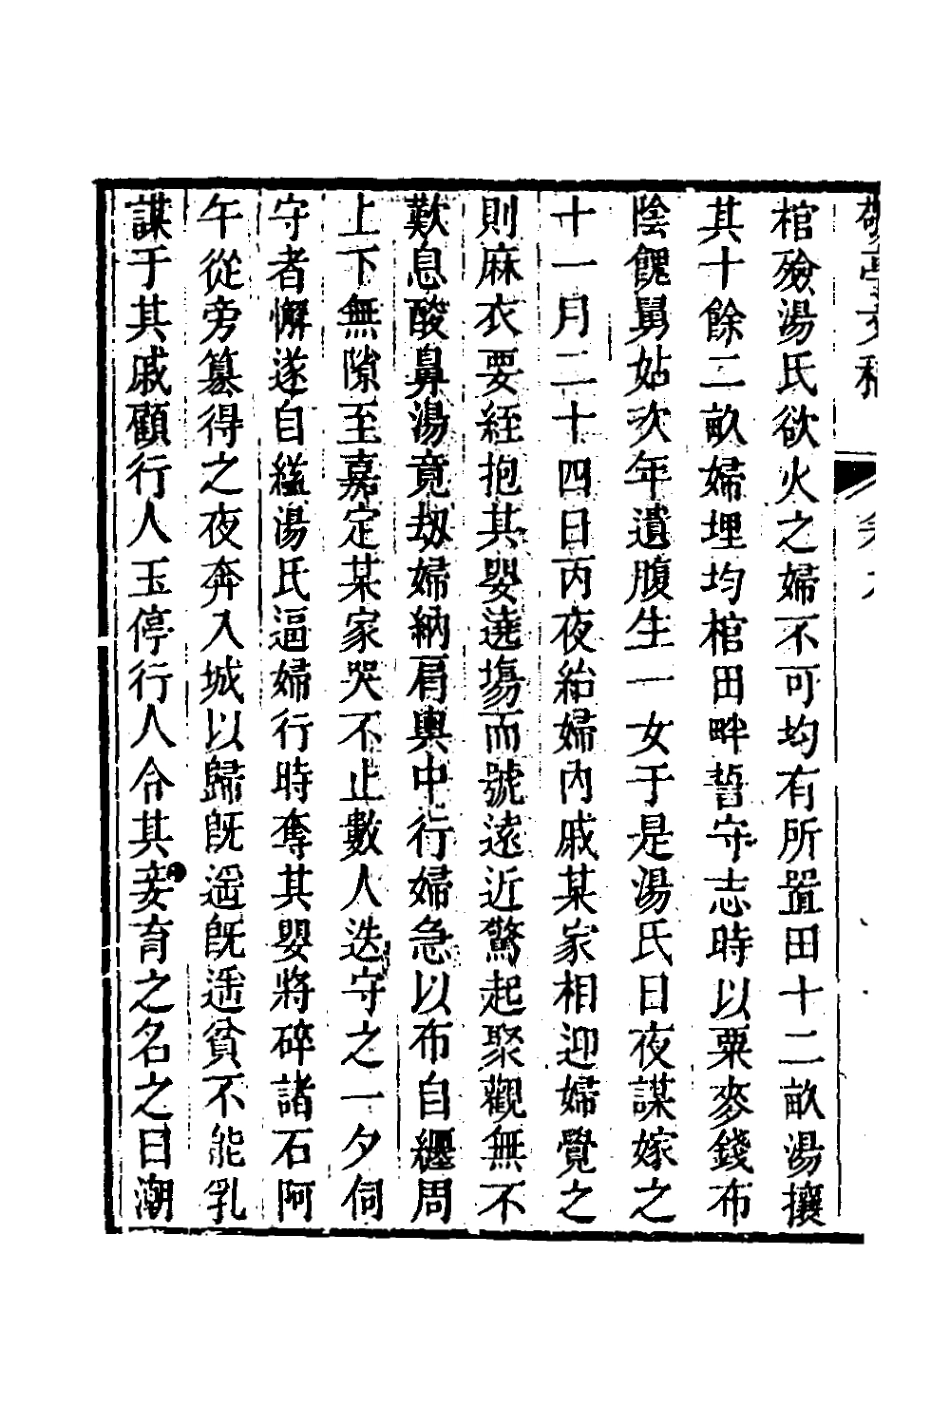 敬亭文稿
棺殮湯氏欲火之婦不可均有所置田十二畝湯攘
其十餘二畝婦埋均棺田畔誓守志時以粟麥錢布
陰餽舅姑次年遺腹生一女于是湯氏日夜謀嫁之
十一月二十四日丙夜紿婦內戚某家相迎婦覺之
則麻衣要絰抱其嬰遶塲而號遠近驚起聚觀無不
歎息酸鼻湯竟刼婦納肩輿中行婦急以布自纏周
上下無隙至嘉定某家哭不止數人迭守之一夕伺
守者懈遂自縊湯氏逼婦行時奪其嬰將碎諸石阿
午從旁篡得之夜奔入城以歸旣遥旣遥貧不能乳
謀于其戚顧行人玉停行人令其妾育之名之曰潮